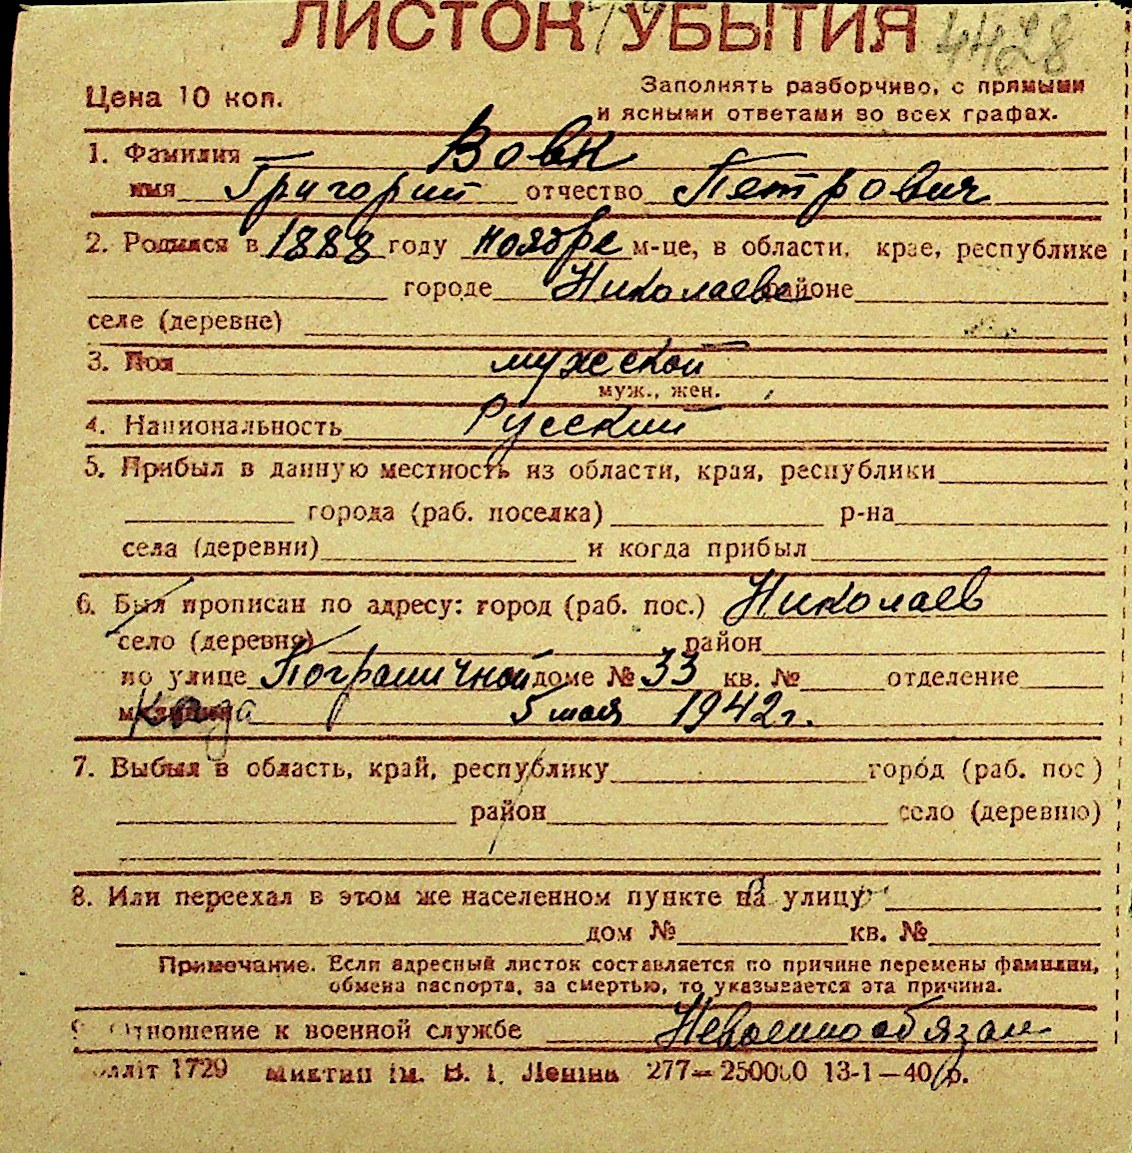 ЛИСТОК УБЫТИЯ 4428
Цена 10 коп.
Заполнять разборчиво, с прямыми
и ясными ответами во всех графах.
1. Фамилия Вовк
имя Григорий отчество Петрович
2. Родился в 1888 году ноябре м-це, в области, крае, республике
городе Николаеве районе
селе (деревне)
3. Пол мужской
муж., жен.
4. Национальность Русский
5. Прибыл в данную местность из области, края, республики
города (раб. поселка) р-на
села (деревни) и когда прибыл
6. Был прописан по адресу: город (раб. пос.) Николаев
село (деревня) район
по улице Пограничной доме № 33 кв. № отделение
милиции 5 мая 1942 г.
7. Выбыл в область, край, республику город (раб. пос)
район село (деревню)
8. Или переехал в этом же населенном пункте на улицу
дом № кв. №
Примечание. Если адресный листок составляется по причине перемены фамилии,
обмена паспорта, за смертью, то указывается эта причина.
9 Отношение к военной службе Невоеннообязан
1729 ім. В. І. Леніна 277—250000 13-1—40 р.